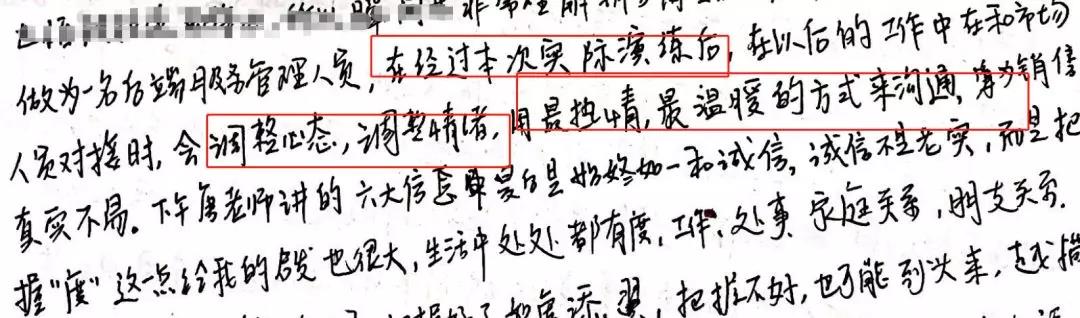 非常理解
做为一名后端服务管理人员，在经过本次实际演练后，在以后的工作中在和市场
人员对接时，会调整心态，调整情绪，用最热情，最温暖的方式来沟通，销售
真实不易。下午唐老师讲的六大信息是始终如一和诚信，诚信不是老实，而是把
握“度”这一点给我的启发也很大，生活中处处都有度，工作、处事 家庭关系，朋友关系.
添翼，把握不好，也可能到头来，